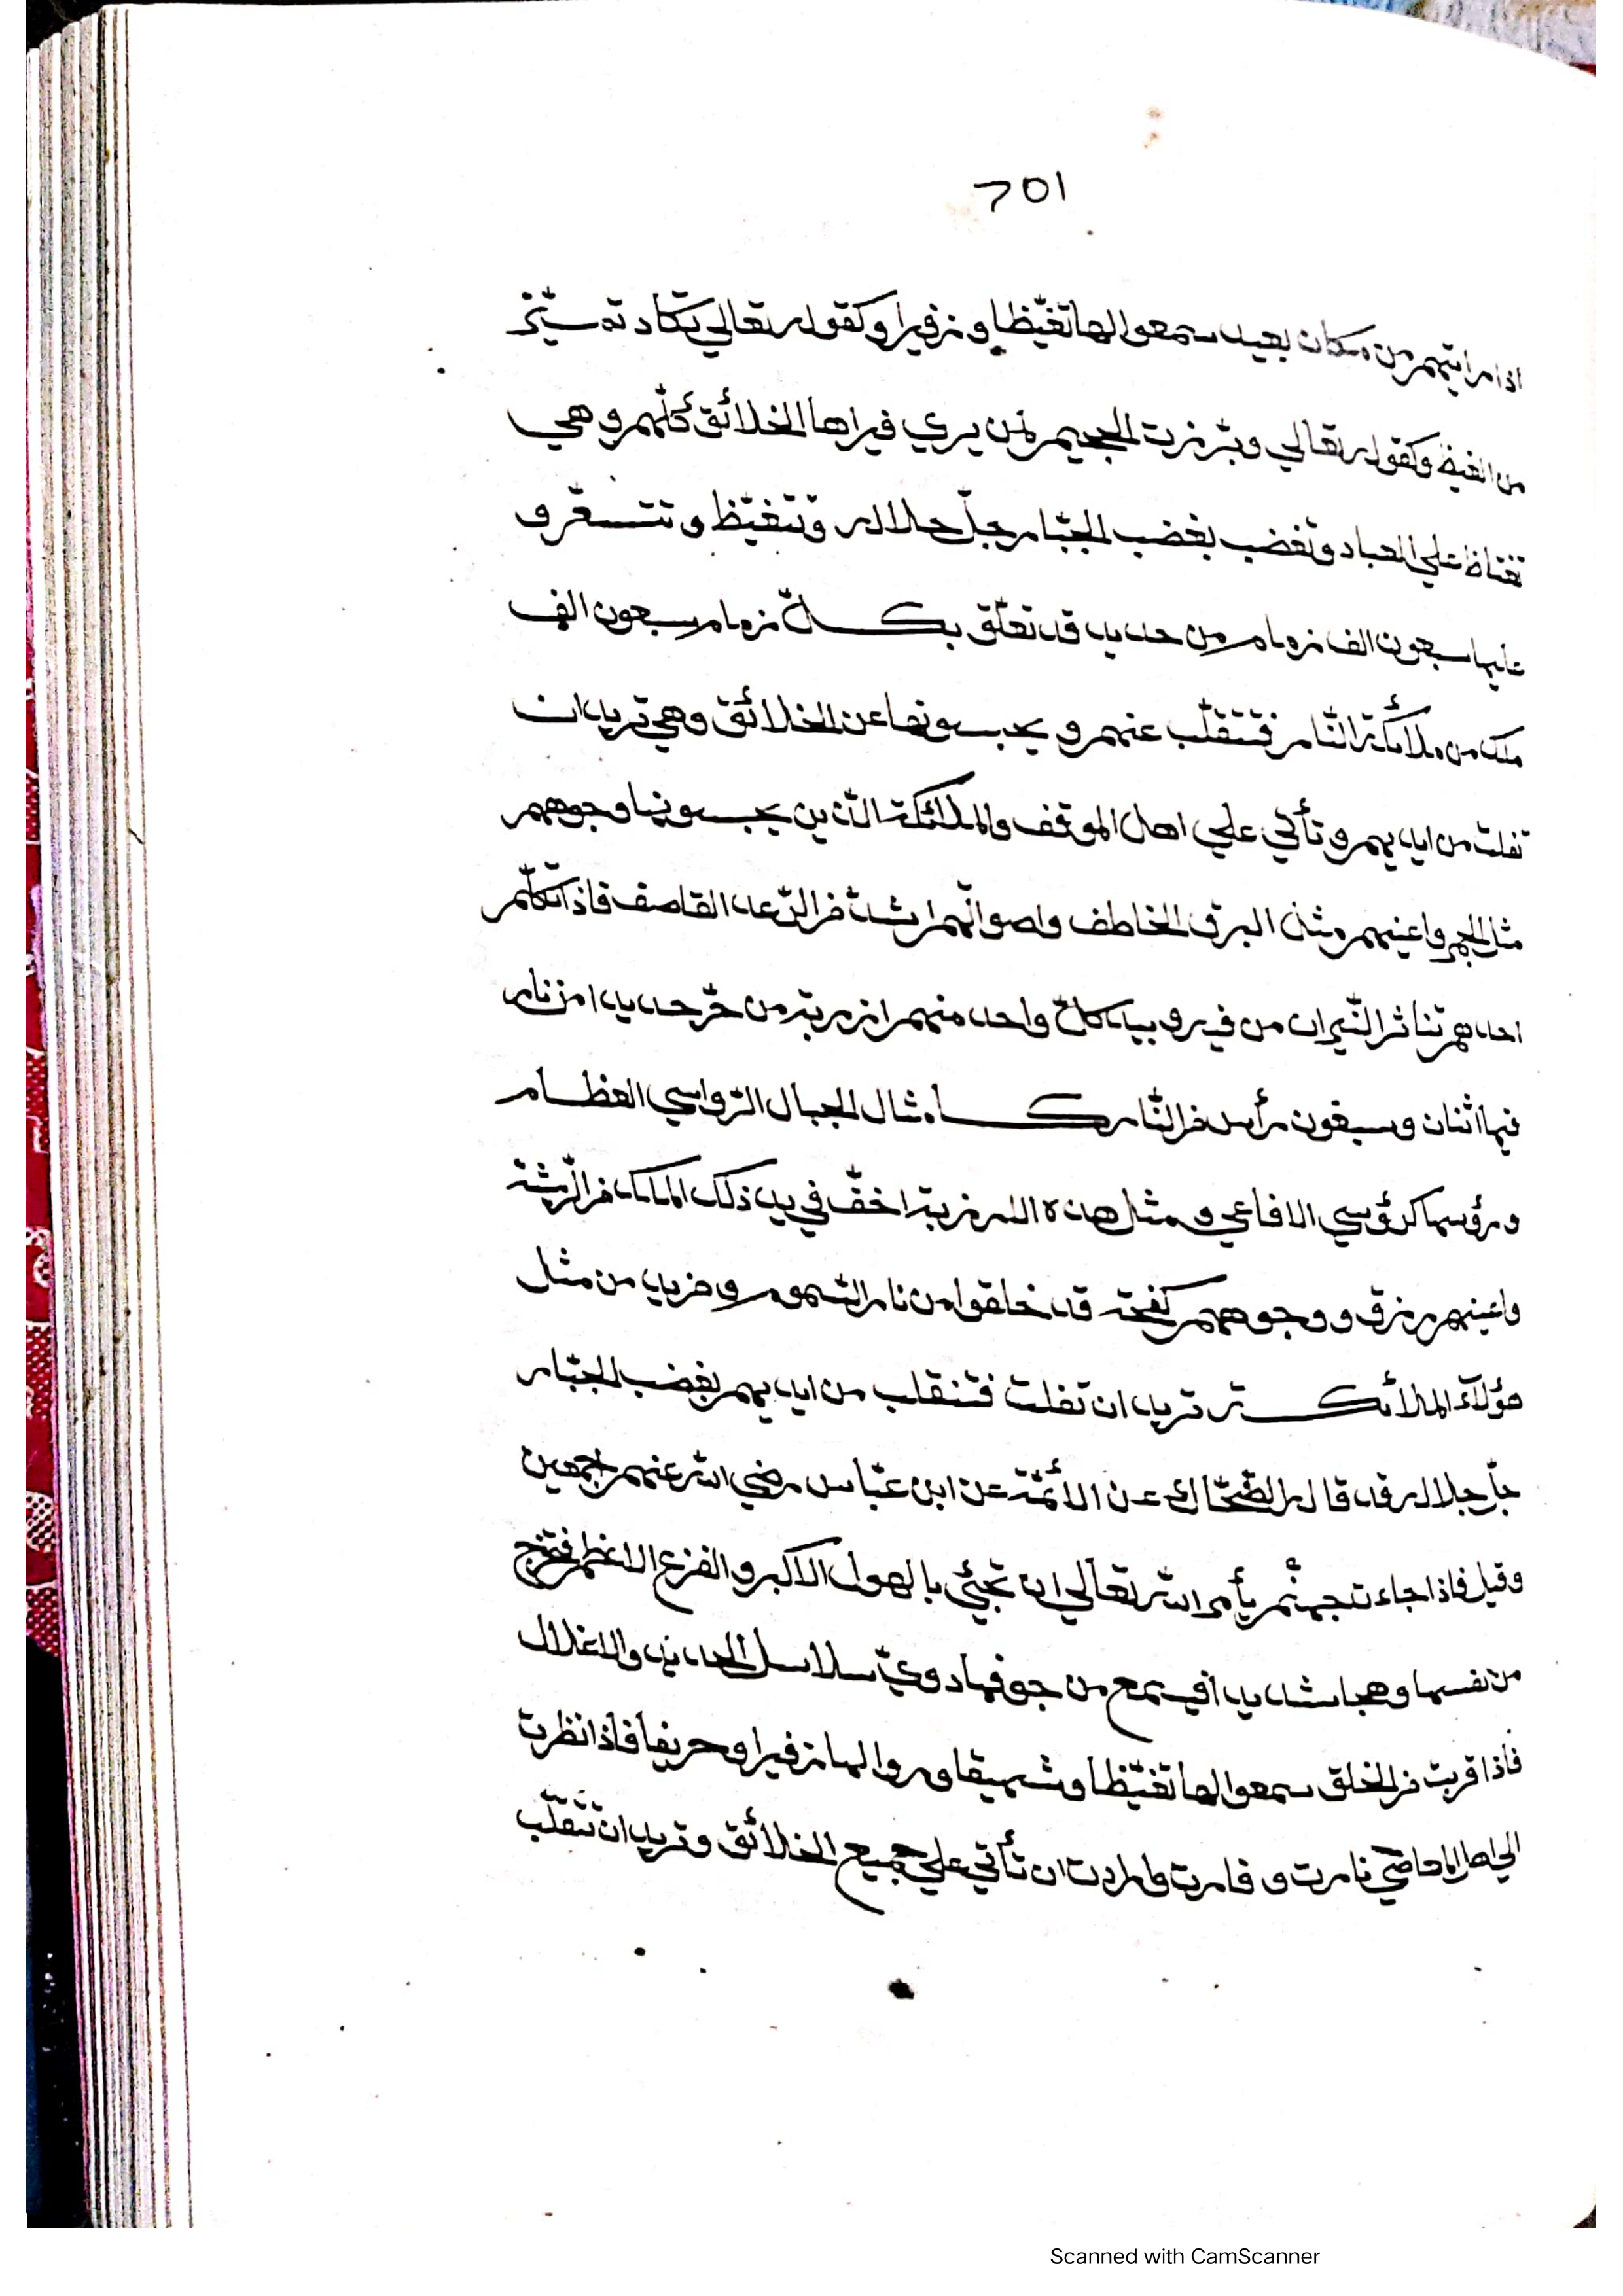 701
اذا رايتهم من مكان بعيد سمعوا لها تغيّظا و زفيرا وكقوله تعالي تكاد تميّز
من الغيظ وكقوله تعالي وبرّزت الجحيم لمن يري فيراها الخلائق كلّهم وهي
تغتاظ علي العباد وتغضب بغضب الجبّار جلّ جلاله وتتغيّظ و تتسعّر و
عليها سبعون الف زمام من حديد قد تعلّق بكلّ زمام سبعون الف
ملك من ملائكة النّار فتتقلّب عنهم و يحبسونها عن الخلائق وهي تريد ان
تفلت من ايديهم و تأتي علي اهل الموقف والملائكة الّذين يحبسونها وجوههم
مثل الجمر واعينهم مثل البرق الخاطف واصواتهم اشدّ من الرّعد القاصف فاذا تكلّم
احدهم تناثر النّيران من فيه و بيد كلّ واحد منهم ارزبة من حديد من نار
فيها اثنان وسبعون رأس من النّار كامثال الجبال الرّواسي العظام
ورؤسها كرؤسي الافاعي و مثل هذه الارزبة اخفّ في يد ذلك الملك من الرّيشة
واعينهم زرق و وجوههم قد خلقوا من نار السّموم و من مثل
هؤلآء الملائكة تريد ان تفلت فتنقلب من ايديهم بغضب الجبّار
جلّ جلاله قد قاله الضّحّاك عن الائمّة عن ابن عبّاس رضي الله عنهم اجمعين
وقيل فاذا جاءت جهنّم يأمر الله تعالي ان تجيئي بالهول الاكبر و الفزع الاعظم فتخرج
من نفسها وهجا شديدا فيسمع من جوفها دويّ سلاسل الحديد والاغلال
فاذا قربت من الخلق سمعوا لها تغيّظا وشهيقا وروا لها زفيرا وحريقا فاذا نظرت
الي اهل نارت و فارت وارادت ان تأتي علي جميع الخلائق و تريد ان تتقلّب
Scanned with CamScanner